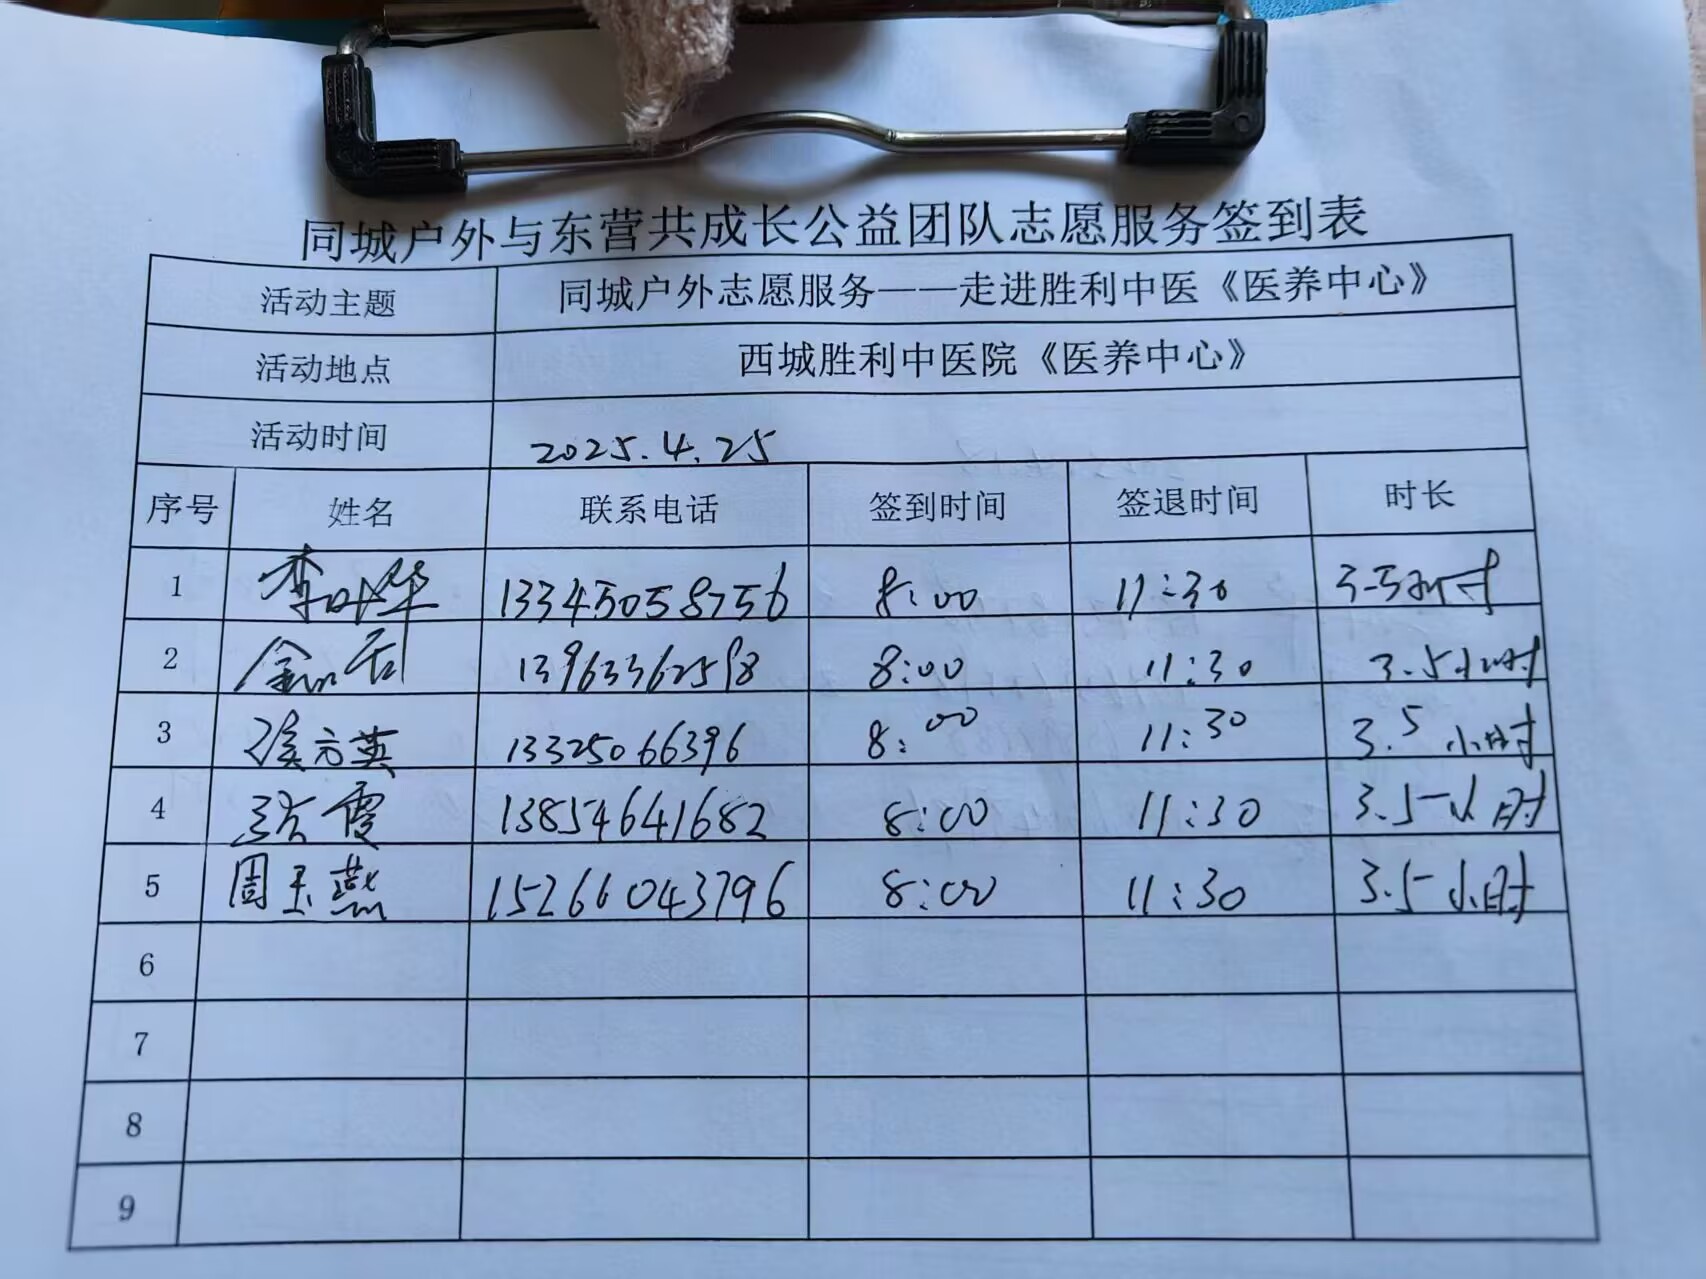 同城户外与东营共成长公益团队志愿服务签到表
活动主题 同城户外志愿服务——走进胜利中医《医养中心》
活动地点 西城胜利中医院《医养中心》
活动时间 2025.4.25
序号 姓名 联系电话 签到时间 签退时间 时长
1 李叶华 13345058756 8:00 11:30 3.5小时
2 13963362598 8:00 11:30 3.5小时
3 徐方英 13325066396 8:00 11:30 3.5小时
4 张霞 13854641682 8:00 11:30 3.5小时
5 周玉燕 15266043796 8:00 11:30 3.5小时
6
7
8
9